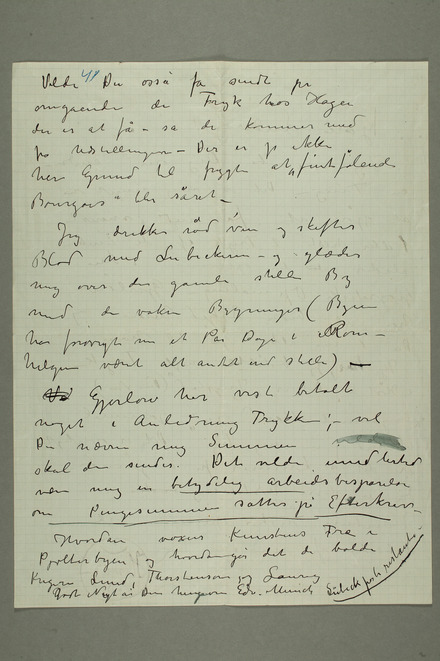 Vilde Du også få sendt pr
omgaaende de Tryk hos Hagen
der er at få – så de kommer med
på Udstillingen – Der er jo ikke
her Grund til frygte at „fintfølende
Bourgois" blir såret –
Jeg drikker rød vin og skifter
Blod med Lubeckerne – og glæder
mig over den gamle stille By
med de vakre Bygninger (Byen
har forøvrigt nu et Par Dage i
helgen været alt andet end stille) –
Gjerløw har vist betalt
noget i Anledning Trykken; – vil
Du nævne mig Summen
skal den sendes. Det vilde
være mig en betydelig arbeidsbesparelse
om Pengesummen sattes på Efterkrav –
Hvordan voxer Kunstens Træ i
Pjolterbyen og hvordan går det de bolde
Lund, Thorstenson og
Godt Nytår Din hengivne Edv. Munch
Lübeck poste restante